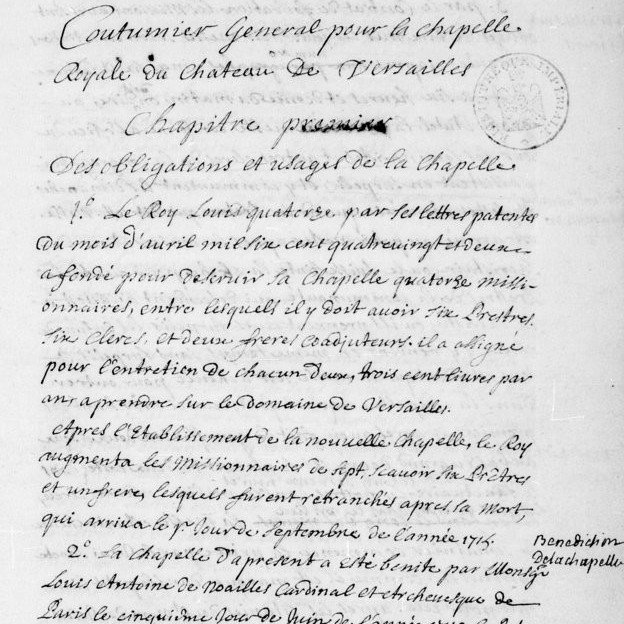 Coutumier General pour la chapelle
Royale du Chateau De Versailles
Chapitre premier
Des obligations et usages de la Chapelle
1.º Le Roy Louis quatorze, par ses lettres patentes
du mois d'avril mil six cent quatrevingt et deux
a fondé pour deservir sa Chapelle quatorze missi-
onnaires, entre lesquels il y doit avoir six Prestres.
six Clercs, et deux freres coadjuteurs. il a assigné
pour l'entretien de chacun deux, trois cent livres par
an, a prendre sur le domaine de Versailles.
Apres l'Etablissement de la nouvelle Chapelle, le Roy
augmenta les Missionnaires de sept, scavoir six Prêtres
et un frere, lesquels furent retranchés apres sa mort,
qui arriva le 1.r Jour de Septembre de l'année 1715.
Benediction
de la chapelle
2.º La Chapelle d'apresent a Esté benite par Monsgr
Louis Antoine de Noailles Cardinal et Archevesque de
Paris le cinquième Jour de Juin de l'année